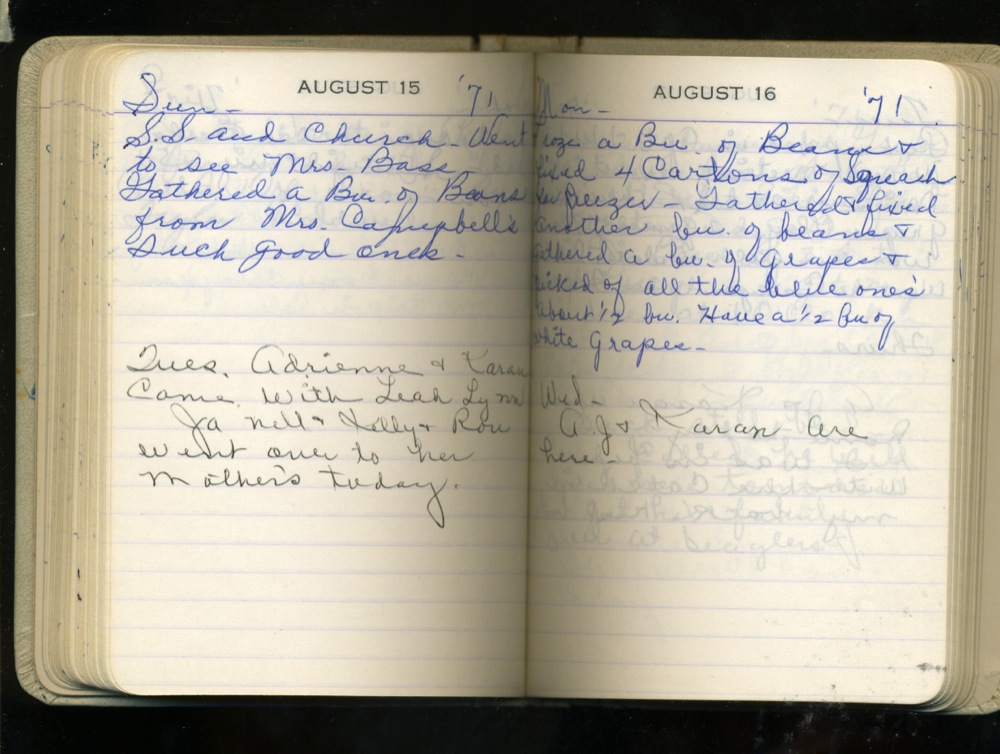 AUGUST 15 '71
Sun -
S.S and Church - Went
to see Mrs. Bass
Gathered a Bu. of Beans
from Mrs. Campbell's
Such good ones -
Tues. Adrienne & Karan
Came with Leah Lynn
Ja Nell & Kelly & Ron
went over to her
Mother's today.
AUGUST 16 '71
Mon -
Froze a Bu. of Beans &
fixed 4 Cartons of Squash
for freezer - Gathered & fixed
another bu. of beans &
gathered a bu. of Grapes &
picked of all the blue one's
About 1/2 bu. Have a 1/2 bu of
white Grapes -
Wed -
A.J & Karan are
here -